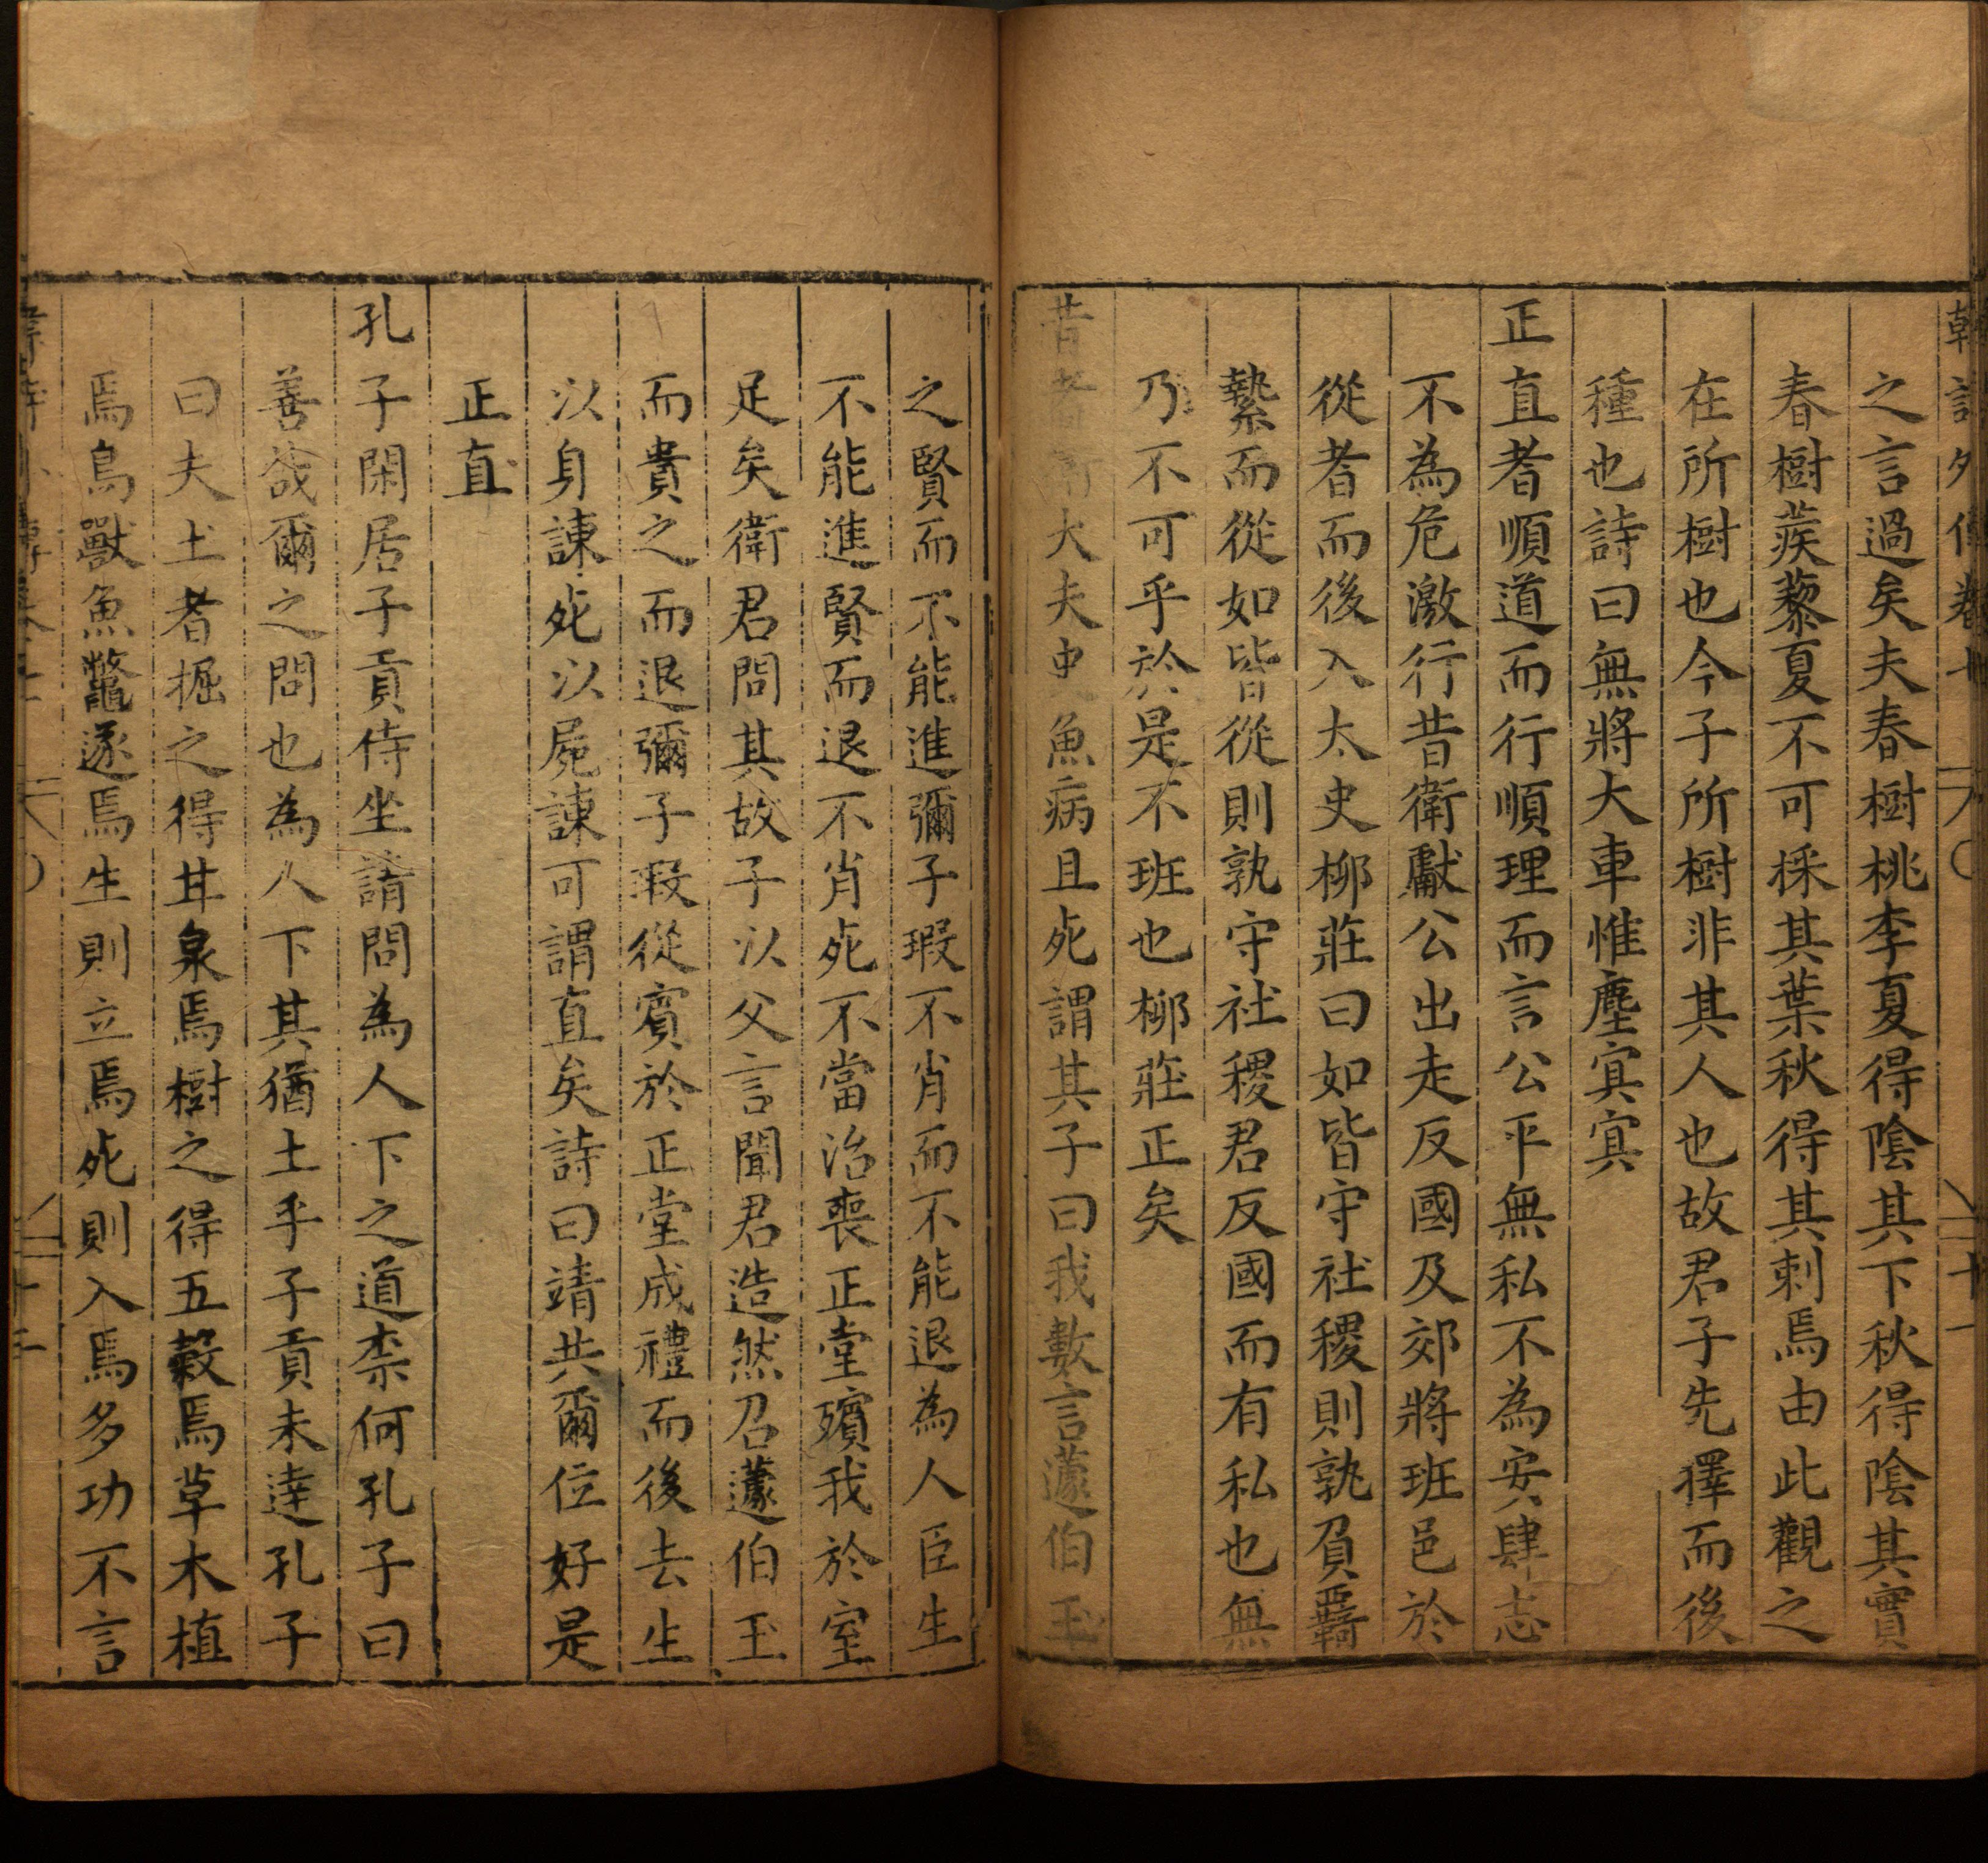 韓詩外傳卷七 十一
之言過矣夫春樹桃李夏得陰其下秋得陰其實
春樹蒺藜夏不可採其葉秋得其刺焉由此觀之
在所樹也今子所樹非其人也故君子先擇而後
種也詩曰無將大車惟塵寘寘
正直者順道而行順理而言公平無私不為安肆志
不為危激行昔衛獻公出走反國及郊將班邑於
從者而後入太史柳莊曰如皆守社稷則孰負覊
縶而從如皆從則孰守社稷君反國而有私也無
乃不可乎於是不班也柳莊正矣
昔者衛大夫史魚病且死謂其子曰我數言蘧伯玉
之賢而不能進彌子瑕不肖而不能退為人臣生
不能進賢而退不肖死不當治喪正堂殯我於室
足矣衛君問其故子以父言聞君造然召蘧伯玉
而貴之而退彌子瑕從賓於正堂成禮而後去生
以身諫死以屍諫可謂直矣詩曰靖共爾位好是
正直
孔子閑居子貢侍坐請問為人下之道柰何孔子曰
善哉爾之問也為人下其猶土乎子貢未逹孔子
曰夫土者掘之得甘泉焉樹之得五糓焉草木植
焉鳥獸魚鱉遂焉生則立焉死則入焉多功不言